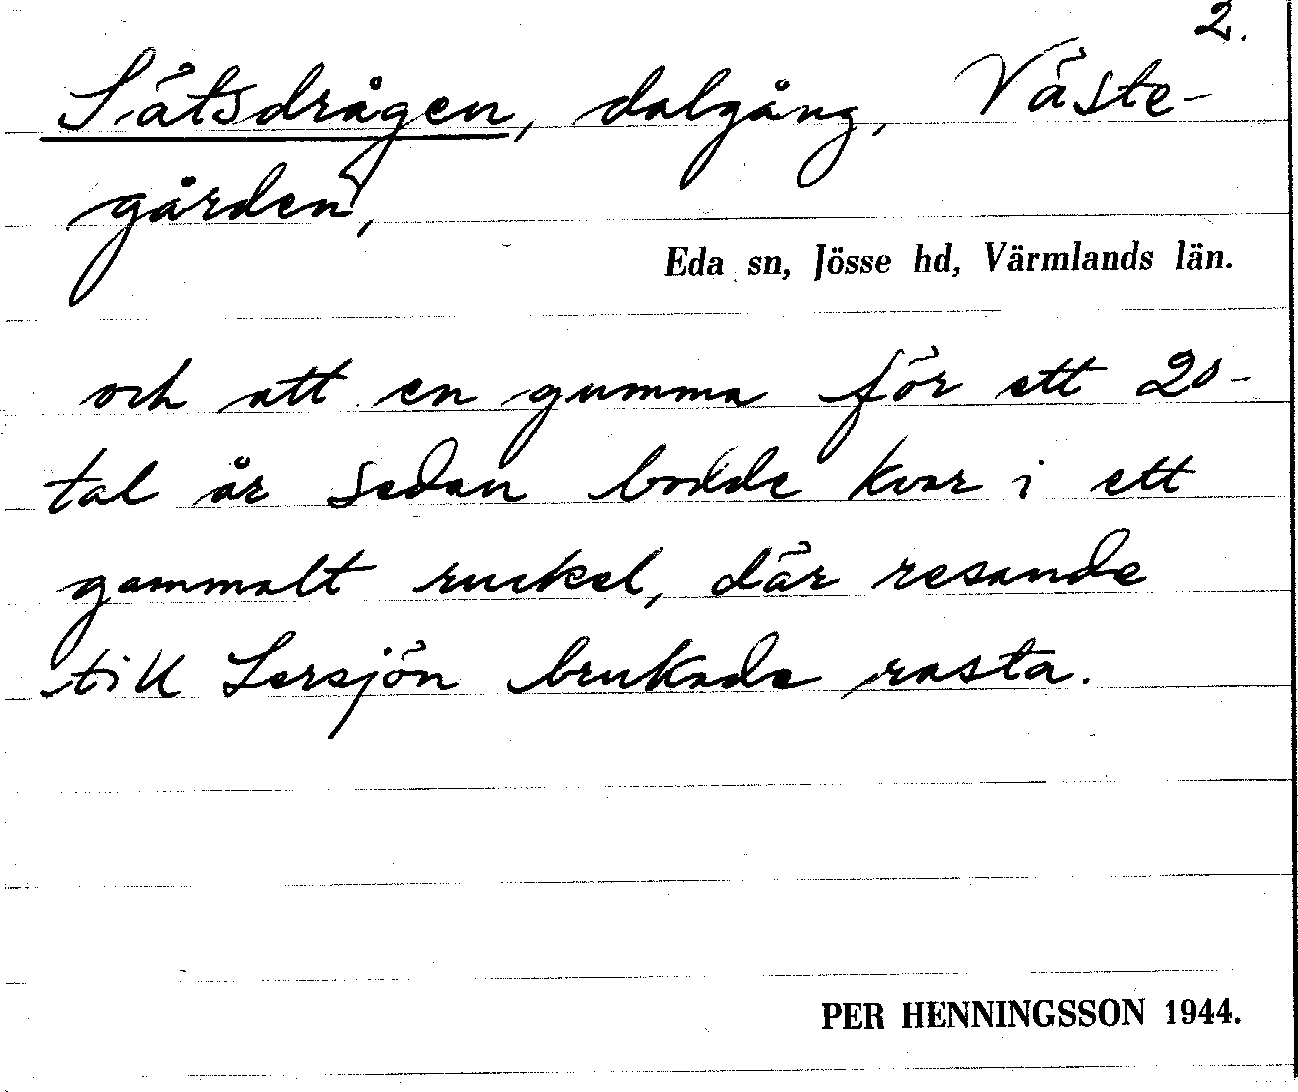 2.
Sätsdrågen, dalgång, Väste-
gården,
Eda sn, Jösse hd, Värmlands län.
och att en gumma för ett 20-
tal år sedan bodde kvar i ett
gammalt ruckel, där resande
till Lersjön brukade rasta.
PER HENNINGSSON 1944.